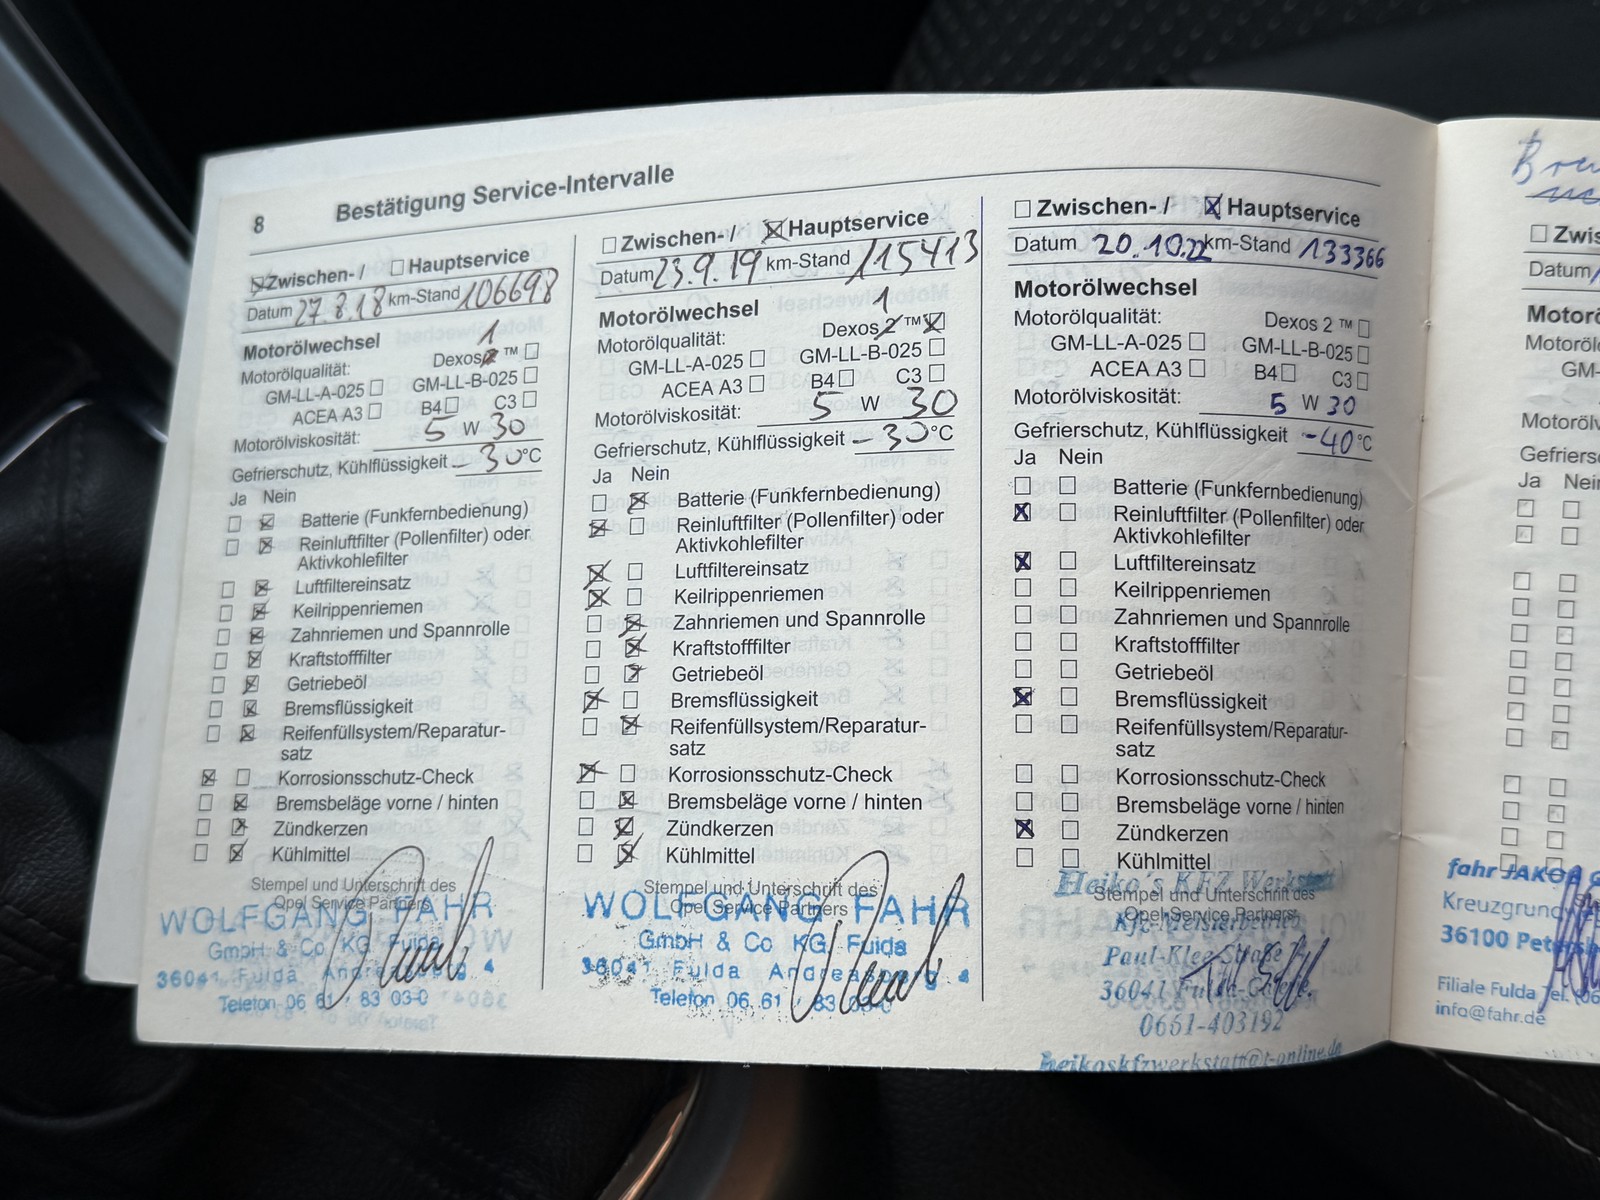 8 Bestätigung Service-Intervalle
☒ Zwischen- / ☐ Hauptservice
Datum 27.8.18 km-Stand 106698
Motorölwechsel 1
Motorölqualität: Dexos 2 ™ ☐
GM-LL-A-025 ☐ GM-LL-B-025 ☐
ACEA A3 ☐ B4 ☐ C3 ☐
Motorölviskosität: 5 W 30
Gefrierschutz, Kühlflüssigkeit -30 °C
Ja Nein
☐ ☒ Batterie (Funkfernbedienung)
☐ ☒ Reinluftfilter (Pollenfilter) oder
Aktivkohlefilter
☐ ☒ Luftfiltereinsatz
☐ ☒ Keilrippenriemen
☐ ☒ Zahnriemen und Spannrolle
☐ ☒ Kraftstofffilter
☐ ☒ Getriebeöl
☐ ☒ Bremsflüssigkeit
☐ ☒ Reifenfüllsystem/Reparatur-
satz
☒ ☐ Korrosionsschutz-Check
☐ ☒ Bremsbeläge vorne / hinten
☐ ☒ Zündkerzen
☐ ☒ Kühlmittel
Stempel und Unterschrift des
Opel Service Partners
WOLFGANG FAHR
GmbH & Co KG Fulda
36041 Fulda Andreasberg 4
Telefon 06 61 / 83 03-0
☐ Zwischen- / ☒ Hauptservice
Datum 23.9.19 km-Stand 115413
Motorölwechsel 1
Motorölqualität: Dexos 2 ™ ☒
GM-LL-A-025 ☐ GM-LL-B-025 ☐
ACEA A3 ☐ B4 ☐ C3 ☐
Motorölviskosität: 5 W 30
Gefrierschutz, Kühlflüssigkeit -30 °C
Ja Nein
☐ ☒ Batterie (Funkfernbedienung)
☒ ☐ Reinluftfilter (Pollenfilter) oder
Aktivkohlefilter
☒ ☐ Luftfiltereinsatz
☒ ☐ Keilrippenriemen
☐ ☒ Zahnriemen und Spannrolle
☐ ☒ Kraftstofffilter
☐ ☒ Getriebeöl
☒ ☐ Bremsflüssigkeit
☐ ☒ Reifenfüllsystem/Reparatur-
satz
☒ ☐ Korrosionsschutz-Check
☐ ☒ Bremsbeläge vorne / hinten
☐ ☒ Zündkerzen
☐ ☒ Kühlmittel
Stempel und Unterschrift des
Opel Service Partners
WOLFGANG FAHR
GmbH & Co KG Fulda
36041 Fulda Andreasberg 4
Telefon 06 61 / 83 03-0
☐ Zwischen- / ☒ Hauptservice
Datum 20.10.22 km-Stand 133366
Motorölwechsel
Motorölqualität: Dexos 2 ™ ☐
GM-LL-A-025 ☐ GM-LL-B-025 ☐
ACEA A3 ☐ B4 ☐ C3 ☐
Motorölviskosität: 5 W 30
Gefrierschutz, Kühlflüssigkeit -40 °C
Ja Nein
☐ ☐ Batterie (Funkfernbedienung)
☒ ☐ Reinluftfilter (Pollenfilter) oder
Aktivkohlefilter
☒ ☐ Luftfiltereinsatz
☐ ☐ Keilrippenriemen
☐ ☐ Zahnriemen und Spannrolle
☐ ☐ Kraftstofffilter
☐ ☐ Getriebeöl
☒ ☐ Bremsflüssigkeit
☐ ☐ Reifenfüllsystem/Reparatur-
satz
☐ ☐ Korrosionsschutz-Check
☐ ☐ Bremsbeläge vorne / hinten
☒ ☐ Zündkerzen
☐ ☐ Kühlmittel
Heiko's KFZ Werkstatt
Stempel und Unterschrift des
Opel Service Partners
Kfz-Meisterbetrieb
Paul-Klee-Straße
36041 Fulda
0661-403192
heikoskfzwerkstatt@t-online.de
☐ Zwis
Datum
Motorö
Motorölq
GM-
Motorölv
Gefriers
Ja Nein
fahr JAKOB G
Kreuzgrund
36100 Petersb
Filiale Fulda Tel.
info@fahr.de